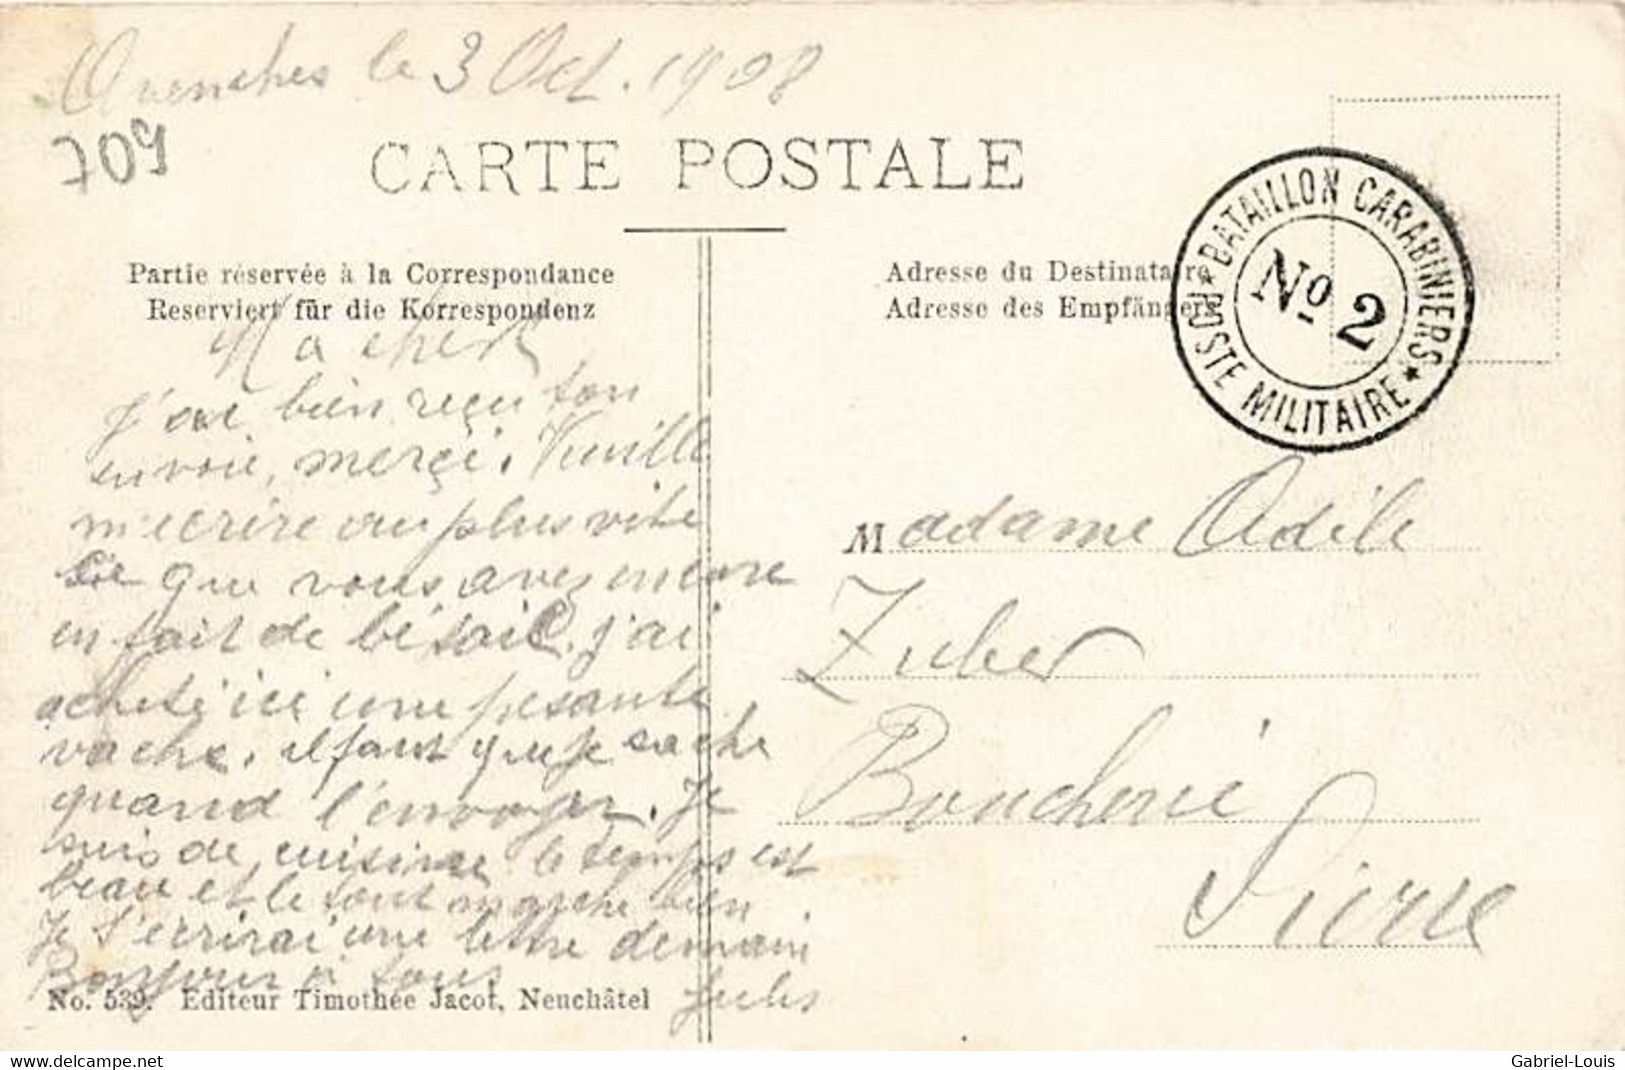 Avenches le 3 Oct. 1908
709
CARTE POSTALE
Partie réservée à la Correspondance
Reserviert für die Korrespondenz
Adresse du Destinataire
Adresse des Empfängers
BATAILLON CARABINIERS
No 2
POSTE MILITAIRE
Ma
J'ai bien reçu ton
envoie, merçi. Veuille
m'ecrire au plus vite
ce que vous avez encore
en fait de bétail. j'ai
acheté ici une pesante
vache. il faut que je sache
quand l'envoyer. Je
suis de cuisine le temps est
beau et le tout marche bien
Je t'écrirai une lettre demain
Bonjour à tous
Jules
Madame Adèle
Zuber
Boucherie
Sierre
No. 539. Editeur Timothée Jacot, Neuchâtel
www.delcampe.net
Gabriel-Louis